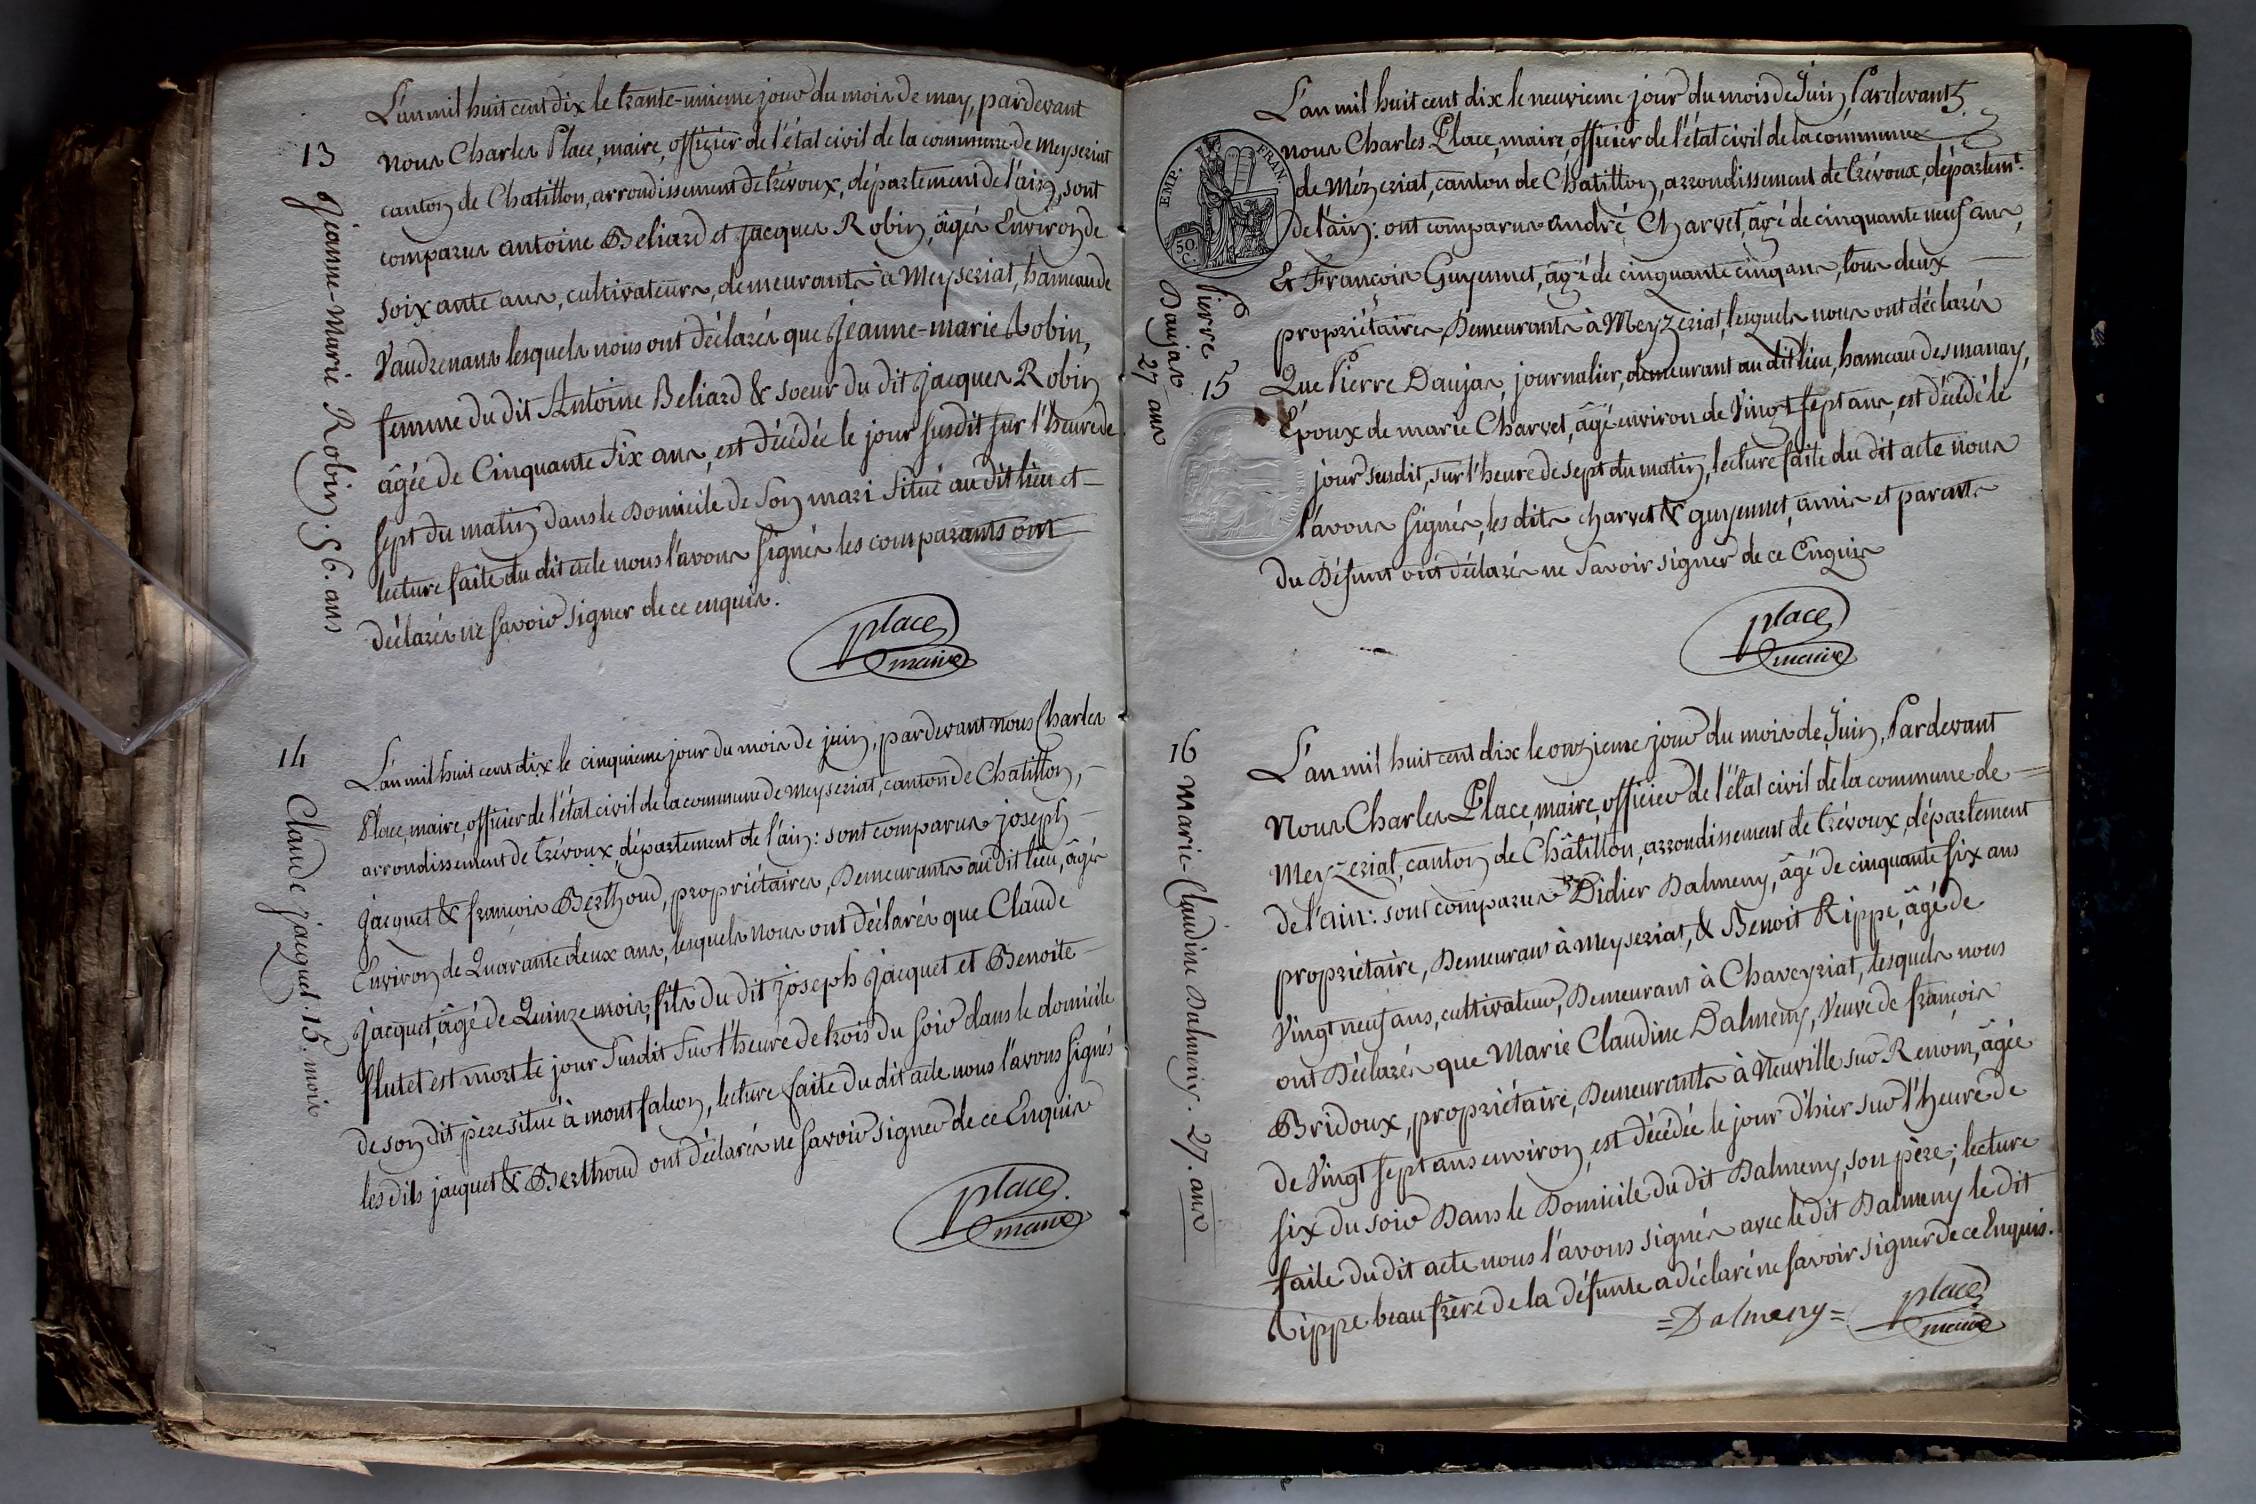 L'an mil huit cent dix le trante-unieme jour du mois de may, pardevant
13 nous Charles Place, maire, officier de l'état civil de la commune de Meyseriat
canton de Chatillon, arrondissement de trévoux, département de l'ain, sont
comparus antoine Beliard et jacques Robin, âgés Environ de
soixante ans, cultivateurs, demeurants à Meyseriat, hameau de
Vaudrenans lesquels nous ont déclarés que Jéanne-marie Robin,
femme du dit Antoine Beliard & soeur du dit jacques Robin
âgée de Cinquante six ans, est décédée le jour susdit sur l'heure de
sept du matin dans le Domicile de son mari situé au dit lieu et
lecture faite du dit acte nous l'avons signés les comparants ont
déclarés ne savoir signer de ce enquis.
Jeanne-Marie Robin. 56. ans
place
maire
14 L'an mil huit cent dix le cinquieme jour du mois de juin, pardevant nous Charles
Place, maire, officier de l'état civil de la commune de Meyseriat, canton de Chatillon,
arrondissement de trévoux, département de l'ain: sont comparus joseph
jacquet & françois Berthoud, propriétaires, Demeurants au dit lieu, âgés
Environ de Quarante deux ans, lesquels nous ont déclarés que Claude
jacquet, âgé de Quinze mois, fils du dit joseph jacquet et Benoite
flutet est mort le jour susdit sur l'heure de trois du soir dans le domicile
de son dit père situé à montfalcon, lecture faite du dit acte nous l'avons signés
les dits jacquet & Berthoud ont déclarés ne savoir signer de ce Enquis
Claude jacquet. 15. mois
place.
maire
L'an mil huit cent dix le neuvieme jour du mois de Juin, Pardevant 5.
nous Charles Place, maire, officier de l'état civil de la commune
de Mézeriat, canton de Châtillon, arrondissement de trévoux, départemt.
de l'ain: ont comparus andré Charvet, âgé de cinquante neuf ans,
& François Guyennet, âgé de cinquante cinq ans, tous deux
propriétaires, Demeurants à Meyzeriat, lesquels nous ont déclarés
15 Que Pierre Daujas, journalier, demeurant au dit lieu, hameau des manays,
Époux de marie Charvet, âgé environ de Vingt sept ans, est décédé le
jour susdit, sur l'heure de sept du matin, lecture faite du dit acte nous
l'avons signés, les dits charvet & guyennet, amis et parants
du Défunt ont déclarés ne savoir signer de ce Enquis
Pierre
Daujas
27 ans
EMP. FRAN.
50.
C.
place
maire
16 L'an mil huit cent dix le onzieme jour du mois de Juin, Pardevant
Nous Charles Place, maire, officier de l'état civil de la commune de
Meyzeriat, canton de Châtillon, arrondissement de trévoux, département
de l'ain: sont comparus Didier Dalmeny, âgé de cinquante six ans
propriétaire, Demeurant à Meyseriat, & Benoit Rippe, âgé de
Vingt neuf ans, cultivateur, Demeurant à Chaveyriat, lesquels nous
ont Déclarés que Marie Claudine Dalmeny, Veuve de françois
Bridoux, propriétaire, Demeurante à Neuville sur Renom, âgée
de Vingt sept ans environ, est décédée le jour d'hier sur l'heure de
six du soir Dans le Domicile du dit Dalmeny, son père; lecture
faite du dit acte nous l'avons signés avec le dit Dalmeny le dit
Rippe beau frère de la défunte a déclaré ne savoir signer de ce Enquis.
Marie-Claudine Dalmeny. 27. ans
=Dalmeny=
place
maire